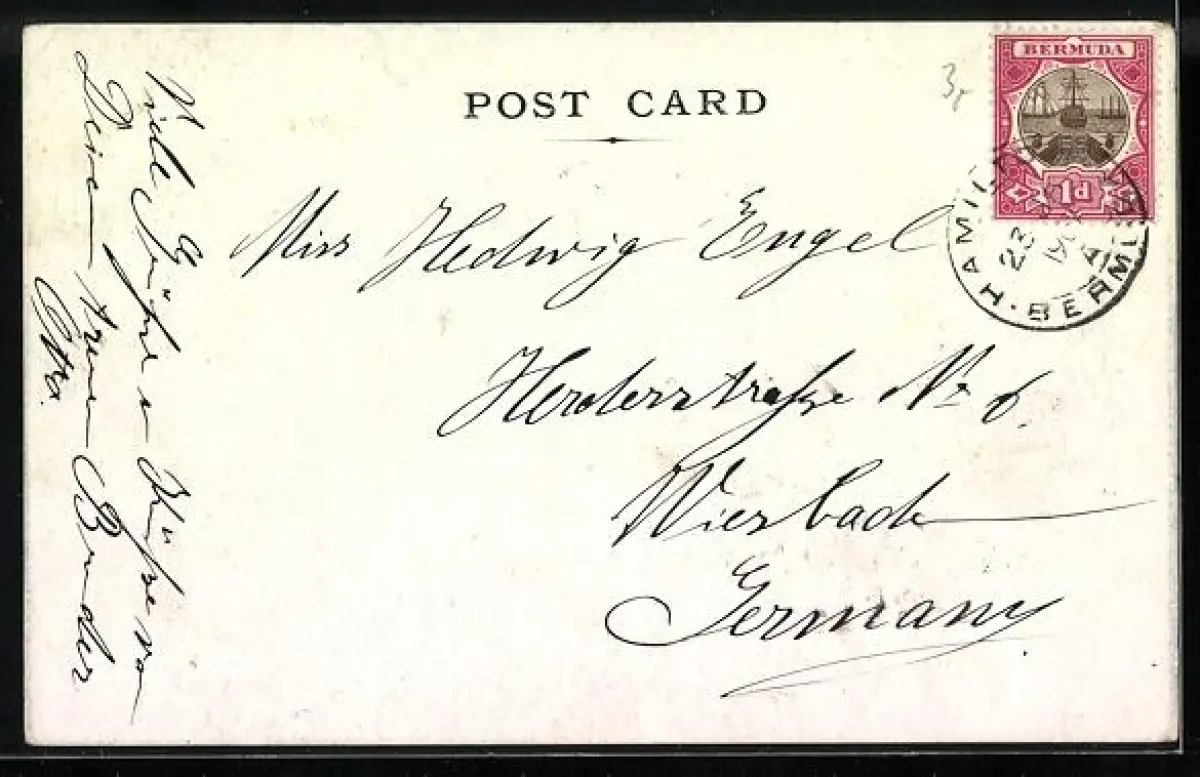 POST CARD
BERMUDA
1d
3,-
HAMILT
23
BERMU
Miss Hedwig Engel
Herderstraße No 6.
Wiesbaden
Germany
Viele Grüße u Küße von
Deinem treuen Bruder
Otto.